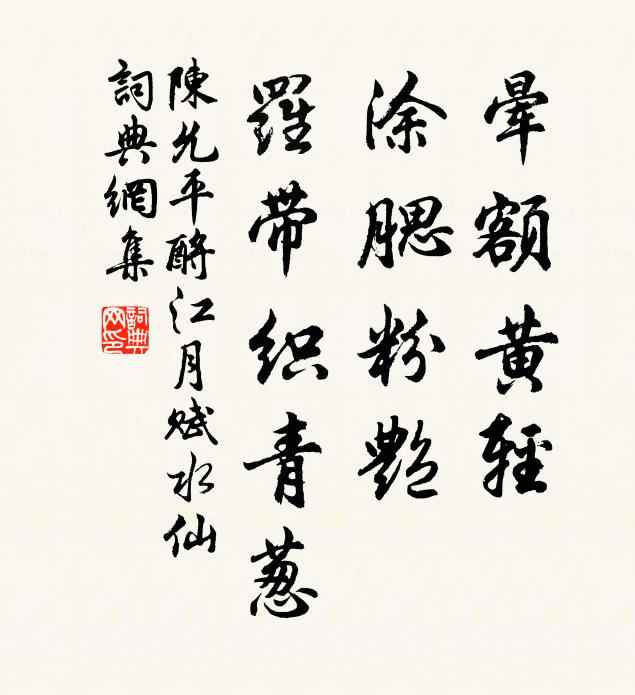 暈額黄輕
涂腮粉艶
羅帶织青葱
陳允平酹江月賦水仙
詞典網集
詞典网印